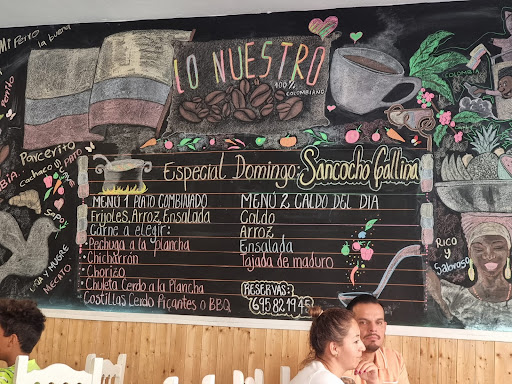 Mi Perro
la buena
LO NUESTRO
100%
COLOMBIANO
Parcerito
Cachaco
Especial Domingo: Sancocho Gallina
MENÚ 1 PLATO COMBINADO
Frijoles, Arroz, Ensalada
Carne a elegir:
Pechuga a la plancha
Chicharrón
Chorizo
Chuleta Cerdo a la Plancha
Costillas Cerdo Picantes o BBQ
MENÚ 2 CALDO DEL DIA
Caldo
Arroz
Ensalada
Tajada de maduro
RESERVAS:
RICO y
Sabroso